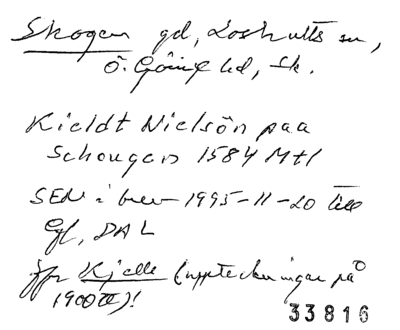 Skogen gd, Loshults sn,
Ö. Göinge hd, Sk.
Kieldt Nielsön paa
Schougen 1584 Mtl
SEN i brev 1995-11-20 till
Gf, DAL
jfr Kjelle (uppteckningar på
1900 t)!
33816